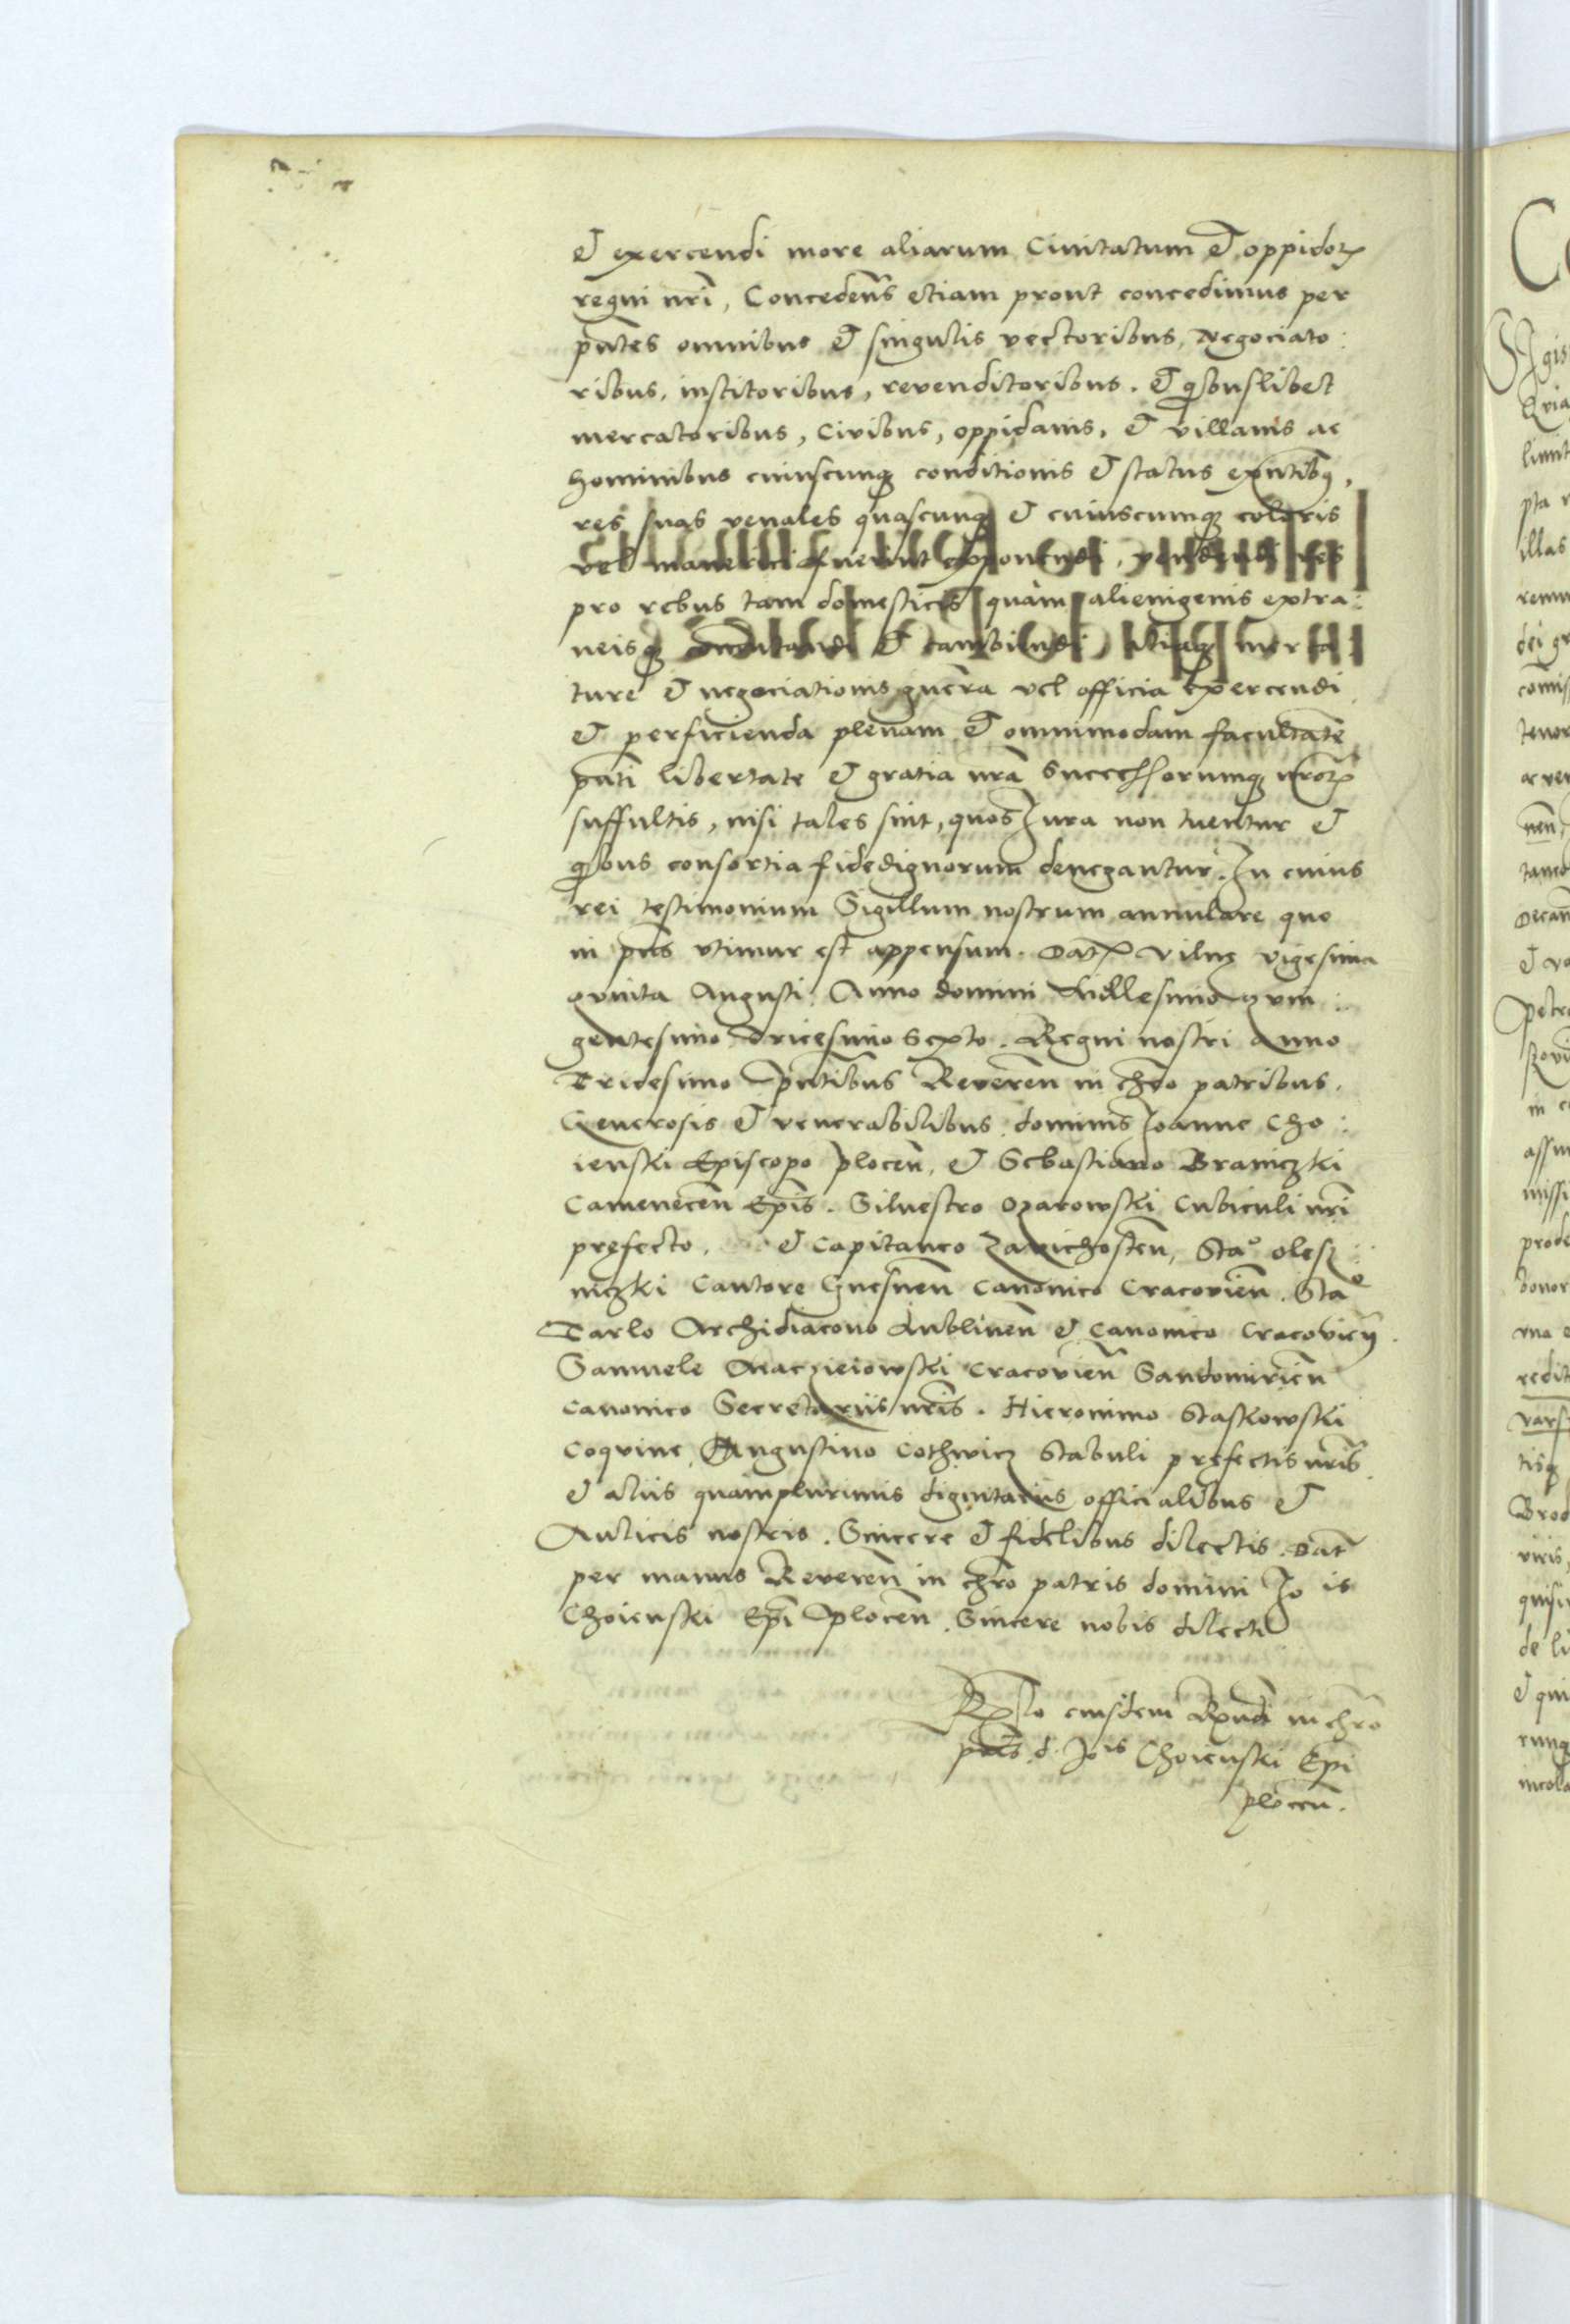 et exercendi more aliarum Civitatum et oppidoꝝ
regni nr̄i, Concedens̄ etiam prout concedimus per
pn̄tes omnibus et singulis vectoribus, Negociato:
ribus, institoribus, revenditoribus. et qͥbuslibet
mercatoribus, Civibus, oppidanis, et villanis ac
hominibus cuiuscunqꝫ conditionis et status exn̄tibꝯ,
res suas venales quascunqꝫ et cuiuscumqꝫ coloris
vel maneriei fuerint exponendi, vendendi res
pro rebus tam domesticis quàm alienigenis extra:
neisqꝫ et cambiendi, aliaqꝫ merca
ture et negociationis gn̄era vel officia exercendi
et perficienda plenam et omnimodam facultatē
pn̄ti libertate et gratia nr̄a Successorumqꝫ nr̄oꝝ
suffultis, nisi tales sint, quos Jura non tuentur et
qͥbus consortia fidedignorum denegantur. In cuius
rei testimonium Sigillum nostrum annulare quo
in pn̄s vtimur est appensum. Datꝝ Vilnę vigesima
qvinta Augusti. Anno domini Millesimo qvin:
gentesimo Tricesimo Sexto. Regni nostri Anno
Tricesimo Pn̄tibus Reveren̄ in chr̄o patribus.
Generosis et venerabilibus. dominis Joanne Cho:
ienski Episcopo plocen̄, et Sebastiano Braniczki
Camenecen̄ Ep̄is. Silvestro Ozarowski Cubiculi nr̄i
pręfecto, et Capitaneo Zavichosten̄, Staº olesz:
niczki Cantore Gnesnen̄ Canonico Cracovien̄. Staº
Tarlo Archidiacono Lublinen̄ et Canonico Cracovien̄.
Samuele Macieiowski Cracovien̄ Sandomirien̄
Canonico Secretariis nr̄is. Hieronimo Staskowski
Coqvine, Augustino Cothwicz Stabuli pręfectis nr̄is
et aliis quamplurimis dignitariis officialibus et
Aulicis nostris. Sincere et fidelibus dilectis. Dat̄
per manus Reveren̄ in chr̄o patris domini Jo is
Choienski Ep̄i Plocen̄. Sincere nobis dilecti
Rełto eiusdem Rṽndi in chr̄o
pr̄is d. Jois Choienski Epi
plocen̄.